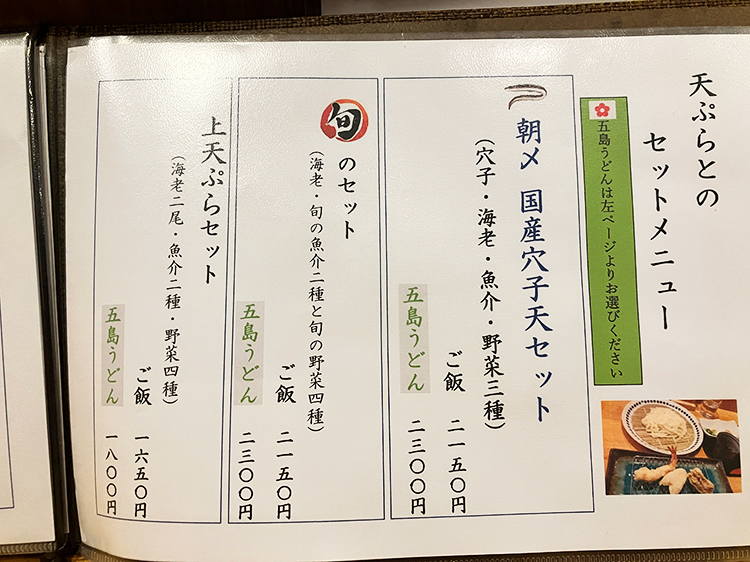 天ぷらとの
セットメニュー
五島うどんは左ページよりお選びください
朝〆 国産穴子天セット
（穴子・海老・魚介・野菜三種）
ご飯 二一五〇円
五島うどん 二三〇〇円
旬のセット
（海老・旬の魚介二種と旬の野菜四種）
ご飯 二一五〇円
五島うどん 二三〇〇円
上天ぷらセット
（海老二尾・魚介二種・野菜四種）
ご飯 一六五〇円
五島うどん 一八〇〇円